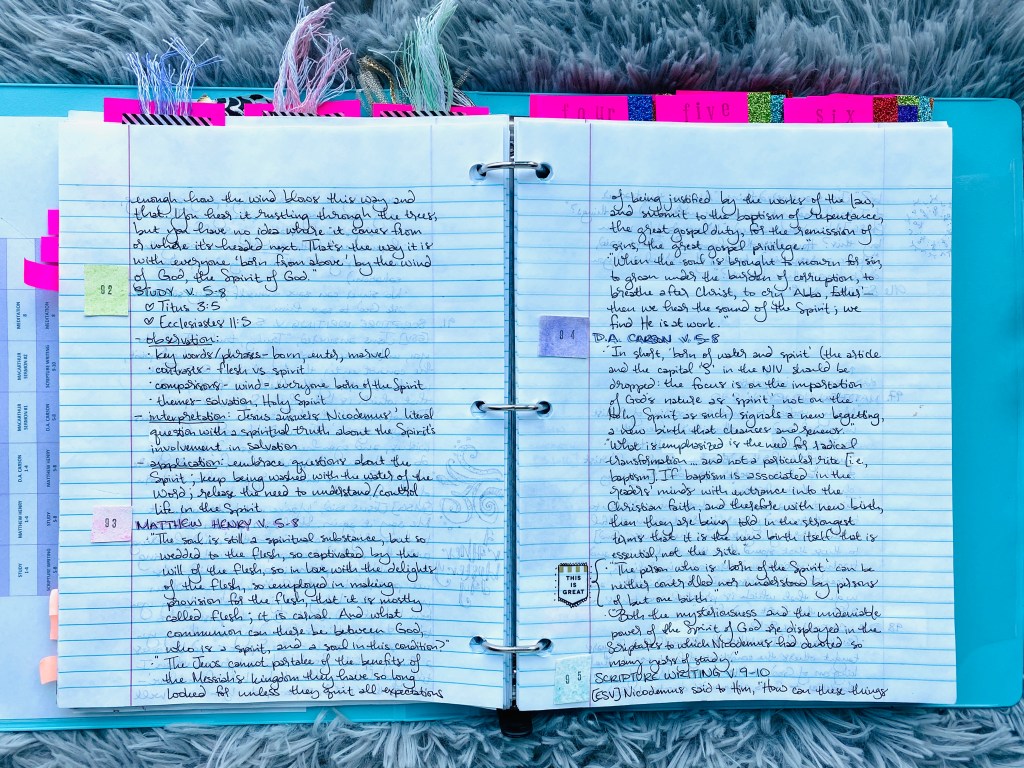 four
five
six
enough how the wind blows this way and
that. You hear it rustling through the trees,
but you have no idea where it comes from
or where it's headed next. That's the way it is
with everyone 'born from above' by the wind
of God, the Spirit of God."
02
STUDY V. 5-8
♡ Titus 3:5
♡ Ecclesiastes 11:5
- observation:
· key words/phrases - born, enter, marvel
· contrasts - flesh vs spirit
· comparisons - wind = everyone born of the Spirit
· themes - salvation, Holy Spirit
- interpretation: Jesus answers Nicodemus' literal
question with a spiritual truth about the Spirit's
involvement in salvation
- application: embrace questions about the
Spirit; keep being washed with the water of the
Word; release the need to understand/control
life in the Spirit
03
MATTHEW HENRY V. 5-8
· "The soul is still a spiritual substance, but so
wedded to the flesh, so captivated by the
will of the flesh, so in love with the delights
of the flesh, so employed in making
provision for the flesh, that it is mostly
called flesh; it is carnal. And what
communion can there be between God,
who is a spirit, and a soul in this condition?"
· "The Jews cannot partake of the benefits of
the Messiah's kingdom they have so long
looked for unless they quit all expectations
of being justified by the works of the law,
and submit to the baptism of repentance,
the great gospel duty, for the remission of
sins, the great gospel privilege."
· "When the soul is brought to mourn for sin,
to groan under the burden of corruption, to
breathe after Christ, to cry 'Abba, Father' –
then we hear the sound of the Spirit; we
find He is at work."
04
D.A. CARSON V. 5-8
· "In short, 'born of water and spirit' (the article
and the capital 'S' in the NIV should be
dropped: the focus is on the impartation
of God's nature as 'spirit' not on the
Holy Spirit as such) signals a new begetting,
a new birth that cleanses and renews."
· "What is emphasized is the need for radical
transformation... and not a particular rite [i.e.,
baptism]. If baptism is associated in the
readers' minds with entrance into the
Christian faith, and therefore with new birth,
then they are being told in the strongest
terms that it is the new birth itself that is
essential, not the rite.
THIS IS GREAT
· "The person who is 'born of the Spirit' can be
neither controlled nor understood by persons
of but one birth."
· "Both the mysteriousness and the undeniable
power of the Spirit of God are displayed in the
Scriptures to which Nicodemus had devoted so
many years of study."
05
SCRIPTURE WRITING V. 9-10
[ESV] Nicodemus said to Him, "How can these things